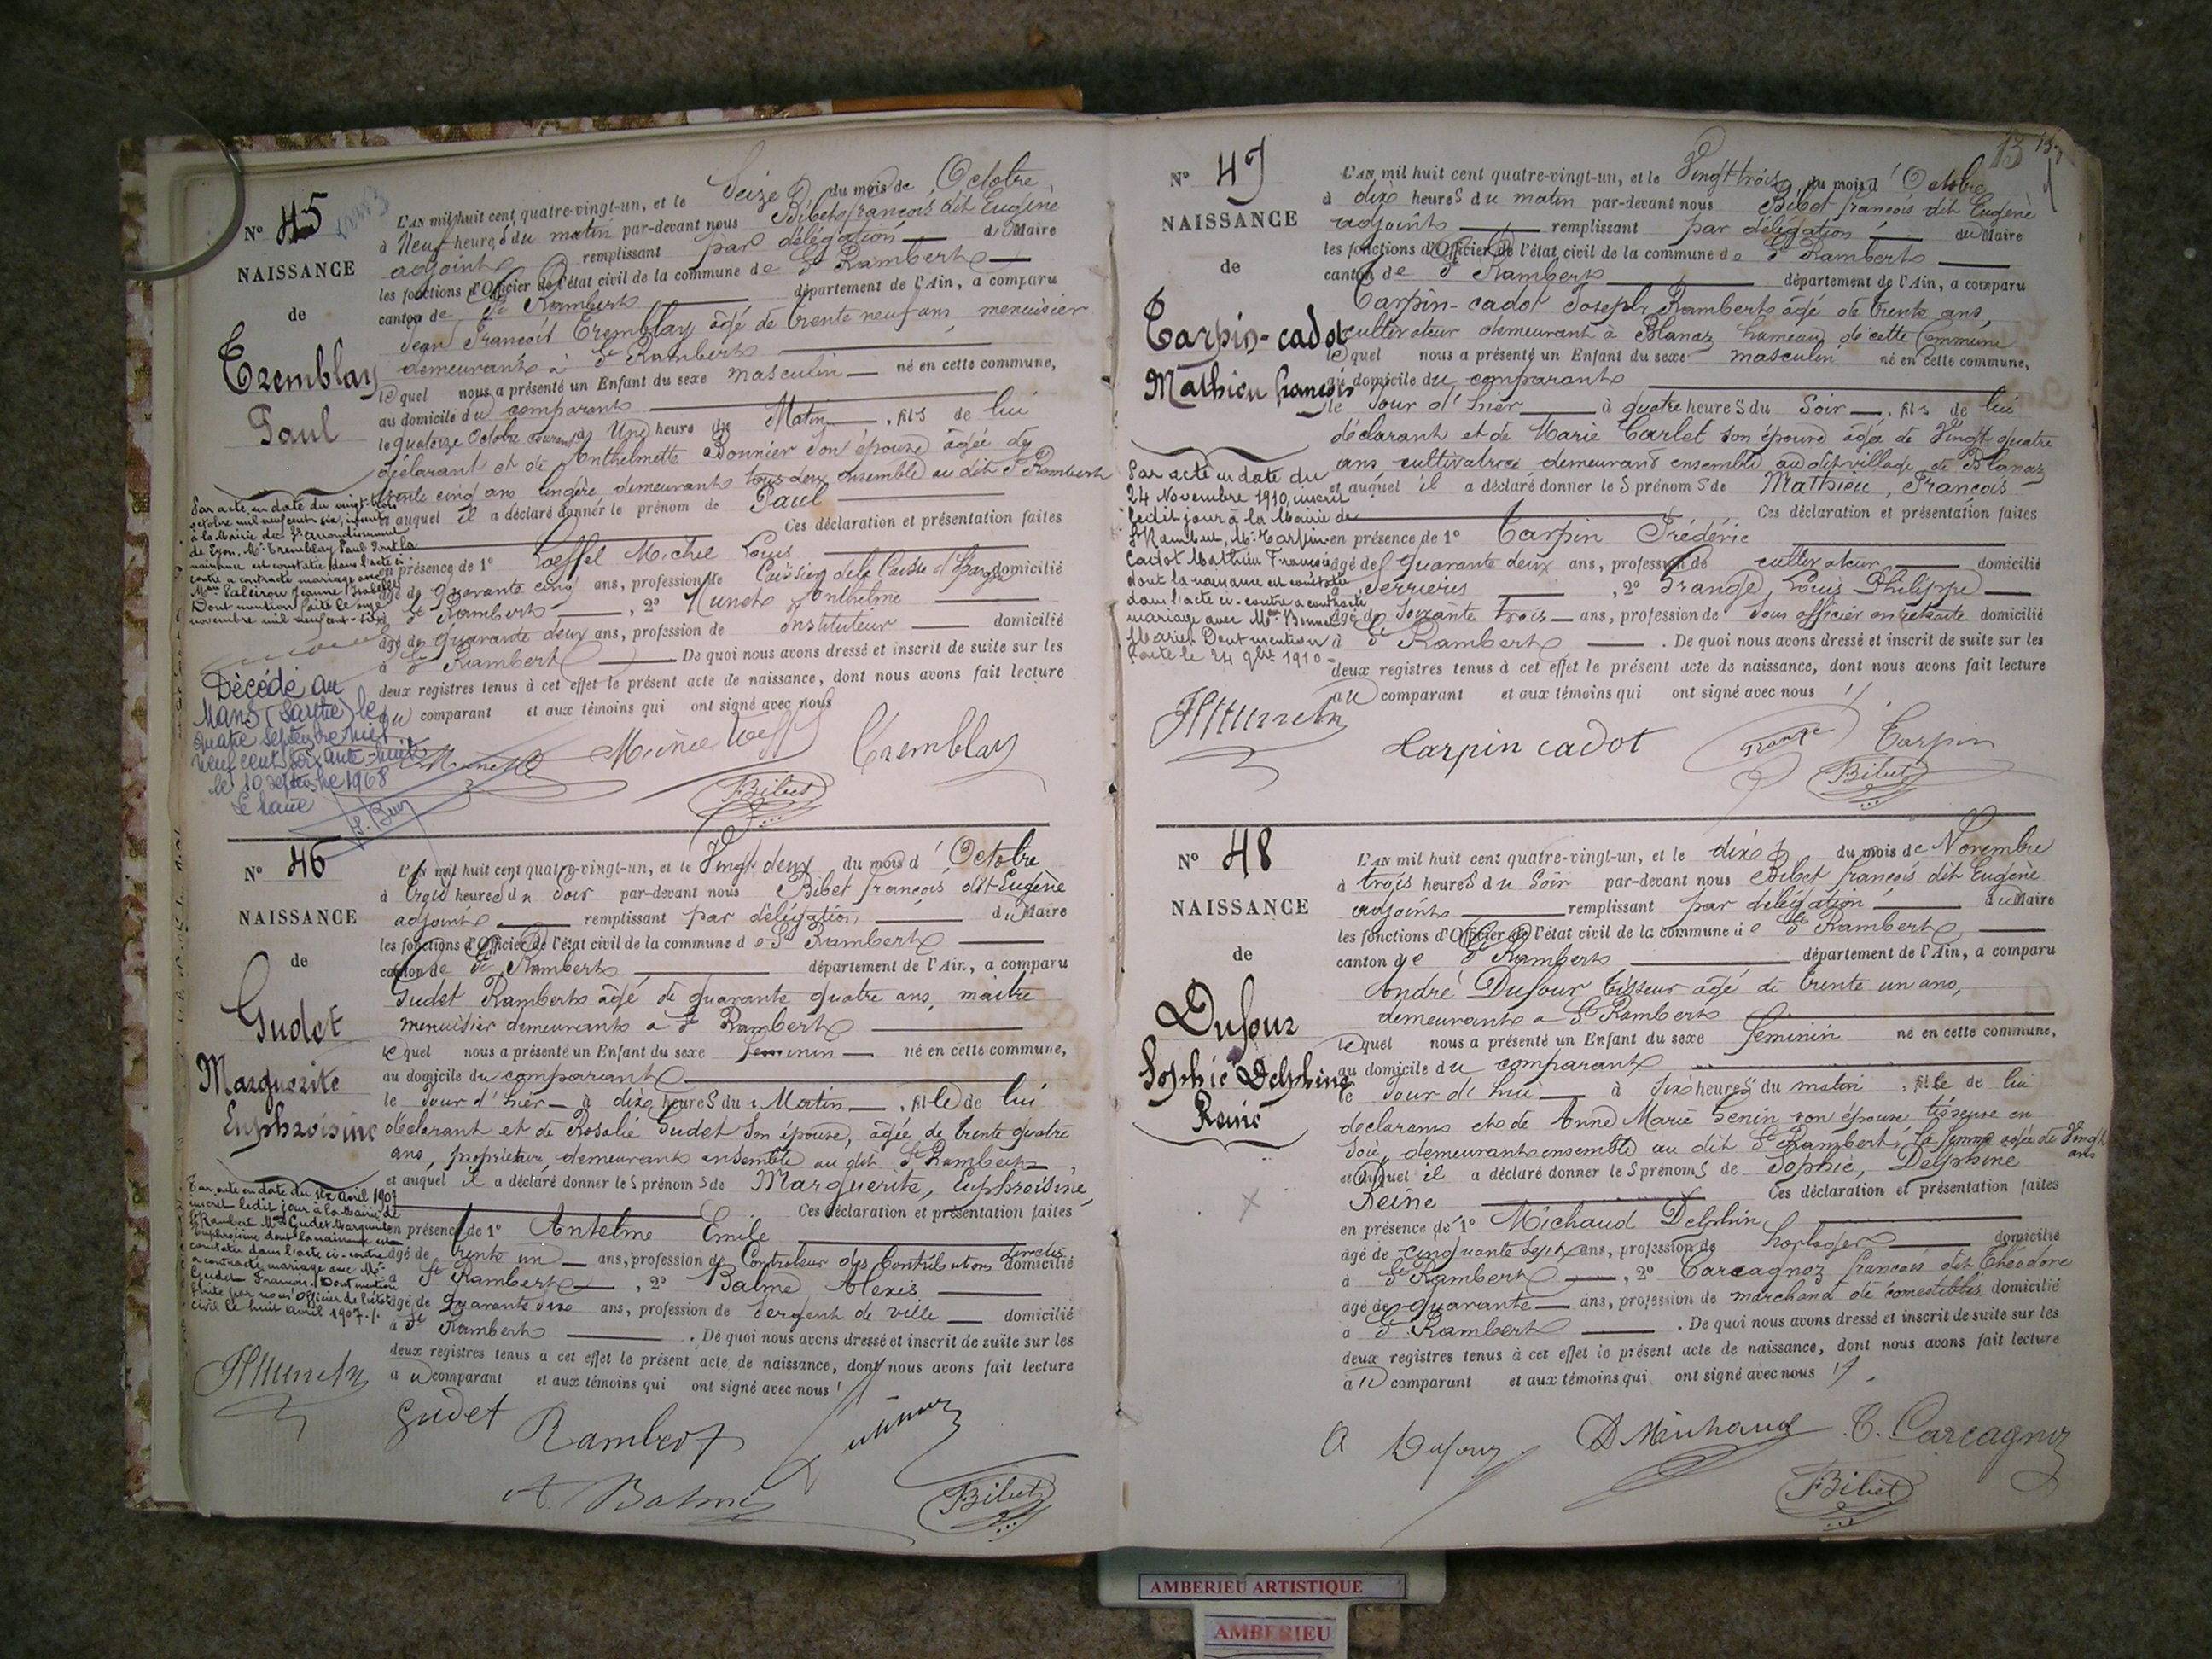 N° 45
NAISSANCE
de
Tremblay
Paul
L'AN mil huit cent quatre-vingt-un, et le Seize du mois de Octobre
à Neuf heures du matin par-devant nous Bibet françois dit Eugène
adjoint remplissant par délégation du Maire
les fonctions d'Officier de l'état civil de la commune de St Rambert
canton de St Rambert département de l'Ain, a comparu
Jean François Tremblay âgé de trente neuf ans, menuisier
demeurant à St Rambert
lequel nous a présenté un Enfant du sexe masculin né en cette commune,
au domicile du comparant
le quatorze Octobre courant à Une heure du Matin, fils de lui
déclarant et de Anthelmette Bonnier son épouse âgée de
trente cinq ans lingère demeurant tous deux ensemble au dit St Rambert
et auquel il a déclaré donner le prénom de Paul
Ces déclaration et présentation faites
en présence de 1° Loeffel Michel Louis
âgé de quarante cinq ans, profession de Caissier de la Caisse d'Epargne domicilié
à St Rambert, 2° Munet Anthelme
âgé de quarante deux ans, profession de Instituteur domicilié
à St Rambert De quoi nous avons dressé et inscrit de suite sur les
deux registres tenus à cet effet le présent acte de naissance, dont nous avons fait lecture
au comparant et aux témoins qui ont signé avec nous
Par acte en date du vingt-trois
octobre mil neuf cent six, inscrit
à la Mairie du arrondissement
de Lyon, Mr Tremblay Paul dont la
naissance est constatée dans l'acte ci
contre a contracté mariage avec
Jeanne Isabelle
Dont mention faite le onze
novembre mil neuf cent six
Décédé au
Mans (Sarthe) le
quatre septembre mil
neuf cent soixante-huit
le 10 septembre 1968
Le Maire
Tremblay
Bibet
N° 46
NAISSANCE
de
Gudet
Marguerite
Euphroisine
L'AN mil huit cent quatre-vingt-un, et le Vingt deux du mois d'Octobre
à trois heures du soir par-devant nous Bibet françois dit Eugène
adjoint remplissant par délégation, du Maire
les fonctions d'Officier de l'état civil de la commune de St Rambert
canton de St Rambert département de l'Ain, a comparu
Gudet Rambert âgé de quarante quatre ans, maître
menuisier demeurant à St Rambert
lequel nous a présenté un Enfant du sexe féminin né en cette commune,
au domicile du comparant
le Jour d'hier à dix heures du Matin, fille de lui
déclarant et de Rosalie Gudet son épouse, âgée de trente quatre
ans, propriétaire, demeurant ensemble au dit St Rambert
et auquel il a déclaré donner les prénoms de Marguerite, Euphroisine,
Ces déclaration et présentation faites
en présence de 1° Antelme Emile
âgé de trente un ans, profession de Controleur des Contributions directes domicilié
à St Rambert, 2° Balme Alexis,
âgé de quarante six ans, profession de Sergent de ville domicilié
à St Rambert. De quoi nous avons dressé et inscrit de suite sur les
deux registres tenus à cet effet le présent acte de naissance, dont nous avons fait lecture
au comparant et aux témoins qui ont signé avec nous
Par acte en date du six avril 1907
inscrit ledit jour à la Mairie de
St Rambert Mlle Gudet Marguerite
Euphroisine dont la naissance est
constatée dans l'acte ci-contre
a contracté mariage avec Mr
Gudet François. Dont mention
faite par nous Officier de l'état
civil le huit avril 1907.
Gudet Rambert
A. Balme
Bibet
13
N° 47
NAISSANCE
de
Tarpin-cadot
Mathieu françois
L'AN mil huit cent quatre-vingt-un, et le Vingt trois du mois d'Octobre
à dix heures du matin par-devant nous Bibet françois dit Eugène
adjoint remplissant par délégation du Maire
les fonctions d'Officier de l'état civil de la commune de St Rambert
canton de St Rambert département de l'Ain, a comparu
Tarpin-cadot Joseph Rambert âgé de trente ans,
cultivateur demeurant à Blanaz hameau de cette Commune
lequel nous a présenté un Enfant du sexe masculin né en cette commune,
au domicile du comparant
le Jour d'hier à quatre heures du Soir, fils de lui
déclarant et de Marie Carlet son épouse âgée de Vingt quatre
ans cultivatrice demeurant ensemble au dit village de Blanaz
et auquel il a déclaré donner les prénoms de Mathieu, François
Ces déclaration et présentation faites
en présence de 1° Tarpin Frédéric
âgé de quarante deux ans, profession de cultivateur domicilié
à Serrières, 2° Grange, Louis Philippe
âgé de soixante trois ans, profession de Sous officier en retraite domicilié
à St Rambert. De quoi nous avons dressé et inscrit de suite sur les
deux registres tenus à cet effet le présent acte de naissance, dont nous avons fait lecture
au comparant et aux témoins qui ont signé avec nous
Par acte en date du
24 Novembre 1910, inscrit
ledit jour à la Mairie de
St Rambert, Mr Tarpin
Cadot Mathieu François
dont la naissance est constatée
dans l'acte ci-contre a contracté
mariage avec
Marie. Dont mention
faite le 24 9bre 1910
Tarpin cadot
Grange
Tarpin
Bibet
N° 48
NAISSANCE
de
Dufour
Sophie Delphine
Reine
L'AN mil huit cent quatre-vingt-un, et le dix du mois de Novembre
à trois heures du Soir par-devant nous Bibet françois dit Eugène
adjoint remplissant par délégation du Maire
les fonctions d'Officier de l'état civil de la commune de St Rambert
canton de St Rambert département de l'Ain, a comparu
André Dufour tisseur âgé de trente un ans,
demeurant à St Rambert
lequel nous a présenté un Enfant du sexe féminin né en cette commune,
au domicile du comparant
le Jour d'hui à six heures du matin, fille de lui
déclarant et de Anne Marie Genin son épouse tisseuse en
Soie, demeurant ensemble au dit St Rambert, la femme agée de Vingt
ans
et auquel il a déclaré donner les prénoms de Sophie, Delphine
Reine Ces déclaration et présentation faites
en présence de 1° Michaud Delphin
âgé de cinquante sept ans, profession de horloger domicilié
à St Rambert, 2° Carcagnoz françois dit Théodore
âgé de quarante ans, profession de marchand de comestibles domicilié
à St Rambert. De quoi nous avons dressé et inscrit de suite sur les
deux registres tenus à cet effet le présent acte de naissance, dont nous avons fait lecture
au comparant et aux témoins qui ont signé avec nous
A Dufour
D Michaud
T. Carcagnoz
Bibet
AMBERIEU ARTISTIQUE
AMBERIEU